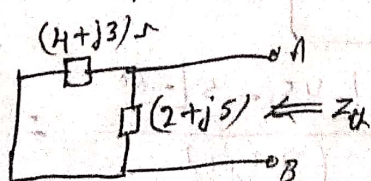 (4+j3)Ω
A
(2+j5) ⇐ Zth
B